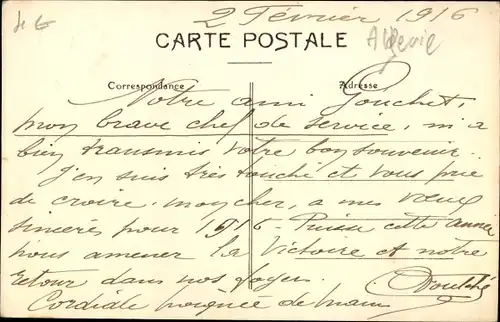 4 €
2 Février 1916
CARTE POSTALE
Algerie
Correspondance
Adresse
Notre ami Gouchet,
mon brave chef de service, m'a
bien transmis votre bon souvenir.
J'en suis très touché et vous prie
de croire, mon cher, a mes vœux
sincères pour 1916. Puisse cette année
nous amener la Victoire et notre
retour dans nos foyers.
Cordiale poignée de main